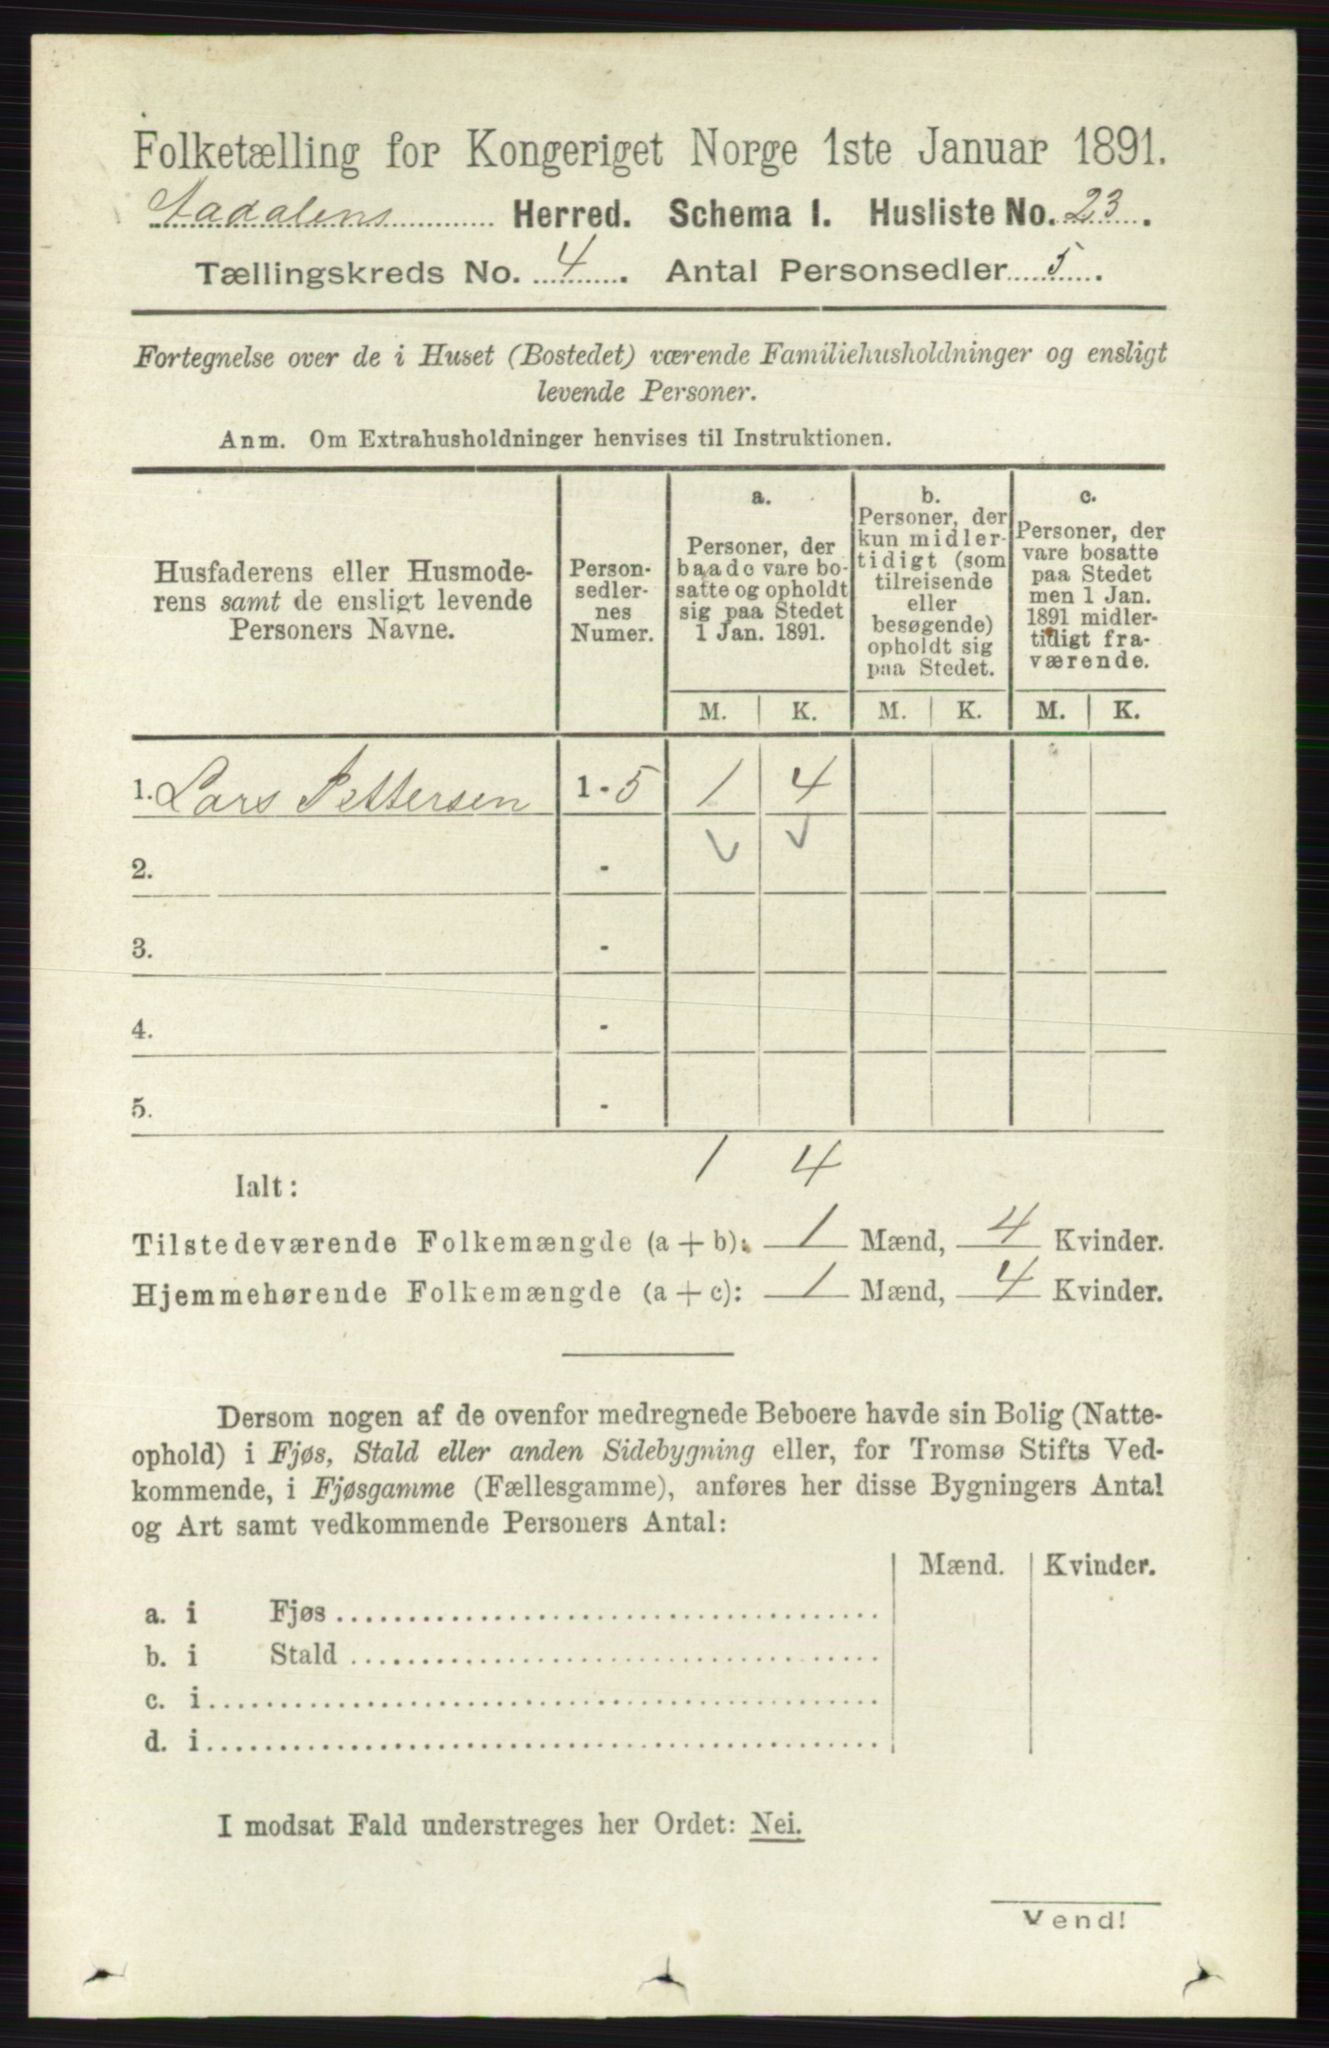 Folketælling for Kongeriget Norge 1ste Januar 1891.
Aadalens Herred. Schema I. Husliste No. 23.
Tællingskreds No. 4. Antal Personsedler 5.
Fortegnelse over de i Huset (Bostedet) værende Familiehusholdninger og ensligt
levende Personer.
Anm. Om Extrahusholdninger henvises til Instruktionen.
Husfaderens eller Husmode-
rens samt de ensligt levende
Personers Navne.
Person-
sedler-
nes
Numer.
a.
Personer, der
baade vare bo-
satte og opholdt
sig paa Stedet
1 Jan. 1891.
b.
Personer, der
kun midler-
tidigt (som
tilreisende
eller
besøgende)
opholdt sig
paa Stedet.
c.
Personer, der
vare bosatte
paa Stedet
men 1 Jan.
1891 midler-
tidigt fra-
værende.
M. K. M. K. M. K.
1. Lars Pettersen 1 - 5 1 4
2. -
3. -
4. -
5. -
1 4
Ialt:
Tilstedeværende Folkemængde (a + b): 1 Mænd, 4 Kvinder.
Hjemmehørende Folkemængde (a + c): 1 Mænd, 4 Kvinder.
Dersom nogen af de ovenfor medregnede Beboere havde sin Bolig (Natte-
ophold) i Fjøs, Stald eller anden Sidebygning eller, for Tromsø Stifts Ved-
kommende, i Fjøsgamme (Fællesgamme), anføres her disse Bygningers Antal
og Art samt vedkommende Personers Antal:
Mænd. Kvinder.
a. i Fjøs
b. i Stald
c. i
d. i
I modsat Fald understreges her Ordet: Nei.
Vend!